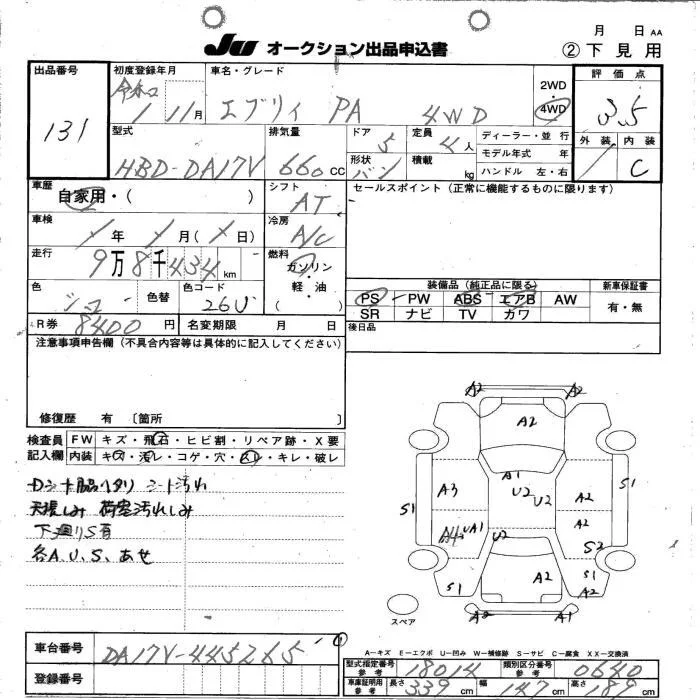 月 日 AA
JU オークション出品申込書
② 下見用
出品番号
131
初度登録年月
令和
1 11月
車名・グレード
エブリイ PA 4WD
2WD
4WD
評価点
3.5
外装 内装
C
型式
HBD-DA17V
排気量
660 cc
ドア
5
定員
4人
形状
バン
積載
kg
ディーラー・並行
モデル年式 年
ハンドル 左・右
車歴
自家用・( )
シフト
AT
セールスポイント (正常に機能するものに限ります)
車検
年 月 ( 日)
冷房
A/C
走行
9万8千434 km
燃料
ガソリン・
軽・油
( )
色
色替
色コード
26U
装備品 (純正品に限る)
新車保証書
PS PW ABS エアB AW
SR ナビ TV カワ
有・無
R券
8400円
名変期限 月 日
後日品
注意事項申告欄 (不具合内容等は具体的に記入してください)
修復歴 有 〔箇所 〕
検査員
記入欄
FW キズ・飛石・ヒビ割・リペア跡・X要
内装 キズ・汚レ・コゲ・穴・ムレ・キレ・破レ
Dシート脇ヘタリ シート汚れ
天張しみ 荷室汚れしみ
下廻りS有
各A、U、S、あせ
A2 A2
A2
A1
U2
U2
A3
A2
S1
S1
A4
UA1
U2
A2
S2
S1
A2
S1
A2
A2
A1
スペア
A－キズ E－エクボ U－凹み W－補修跡 S－サビ C－腐食 XX－交換済
車台番号
DA17V-445265
登録番号
型式指定番号
参考
18014
類別区分番号
参考
0640
車庫証明用
参考
長さ
339 cm
幅
147 cm
高さ
89 cm